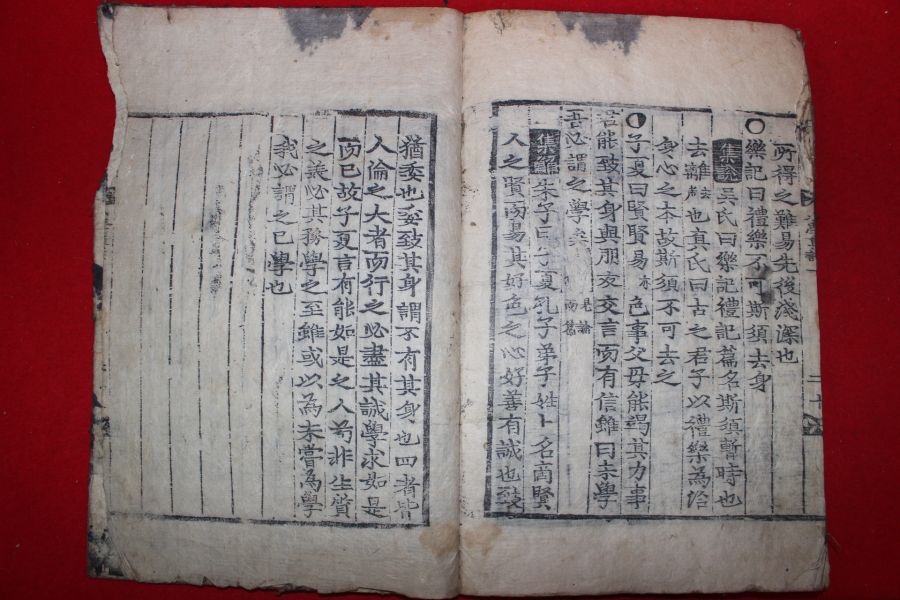 所得之難易先後淺深也
○樂記曰禮樂不可斯須去身
集說吳氏曰樂記禮記篇名斯須暫時也
去離去聲也真氏曰古之君子以禮樂為治
身心之本故斯須不可去之
子夏曰賢賢易色事父母能竭其力事
君能致其身與朋友交言而有信雖曰未學
吾必謂之學矣
朱子曰子夏孔子弟子姓卜名商賢
人之賢而易其好色之心好善有誠也致
猶委也委致其身謂不有其身也四者皆
人倫之大者而行之必盡其誠學求如是
而已故子夏言有能如是之人苟非生質
之美必其務學之至雖或以為未嘗為學
我必謂之已學也
二十八